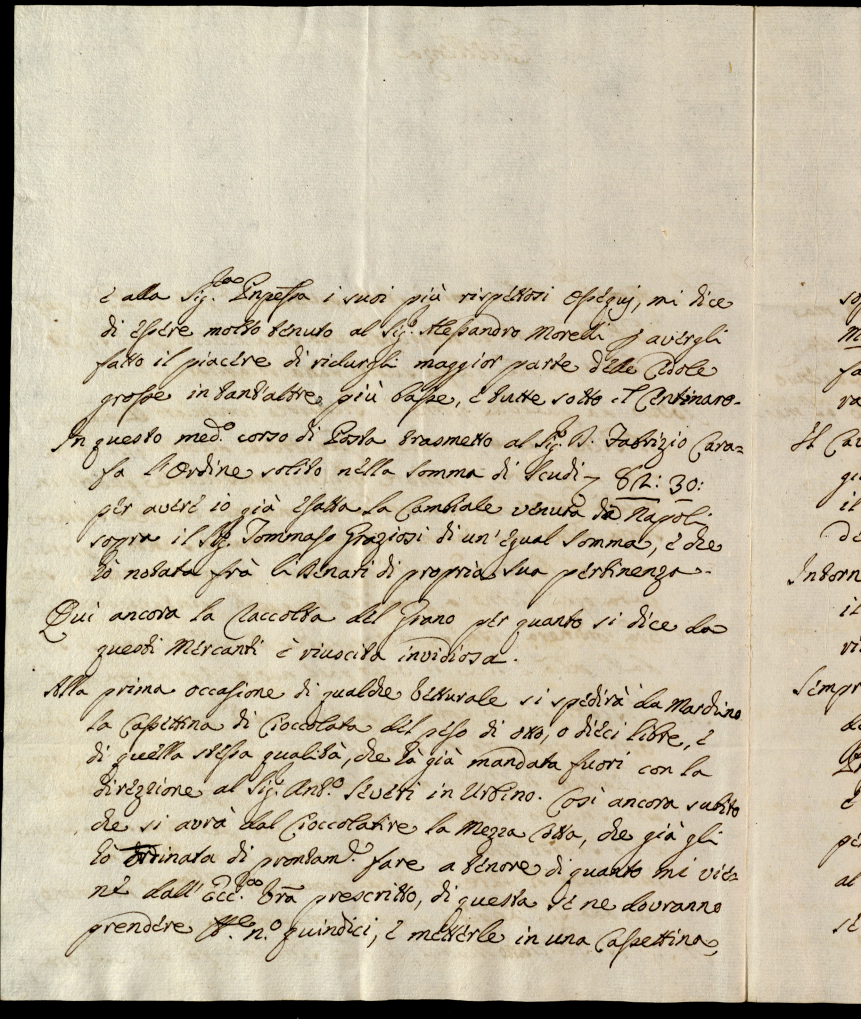 e alla Sig.ra Pnpessa i suoi più rispettosi ossequj, mi dice
di essere molto tenuto al Sig.r Alessandro Morelli p avergli
fatto il piacere di ridurgli maggior parte delle Cedole
grosse in tant'altre più basse, e tutte sotto il Centinaro.
In questo med.o corso di Posta trasmetto al Sig.r D. Fabrizio Cara=
fa l'Ordine solito nella somma di Scudi 82: 30:
per avere io già esatta la Cambiale venuta da Napoli
sopra il Sig.r Tommaso Graziosi di un'egual somma, e che
hò notata frà li Denari di propria sua pertinenza.
Qui ancora la raccolta del Grano per quanto si dice da
questi Mercanti è riuscita invidiosa.
Alla prima occasione di qualche vetturale si spedirà da Marchino
la Cassettina di Cioccolata del peso di otto, o dieci libre, e
di quella stessa qualità, che hà già mandata fuori con la
direzzione al Sig.r Ant.o Severi in Urbino. Così ancora subito
che si avrà dal Cioccolatire la Mezza Cotta, che già gli
hò ordinata di prontam.te fare a tenore di quanto mi vie=
ne dall'Ecc.za Vra prescritto, di questa se ne dovranno
prendere n.o quindici, e metterle in una Cassettina,
sop
fa
va
Il Ca
il
de
Intorn
il
Sempr
al